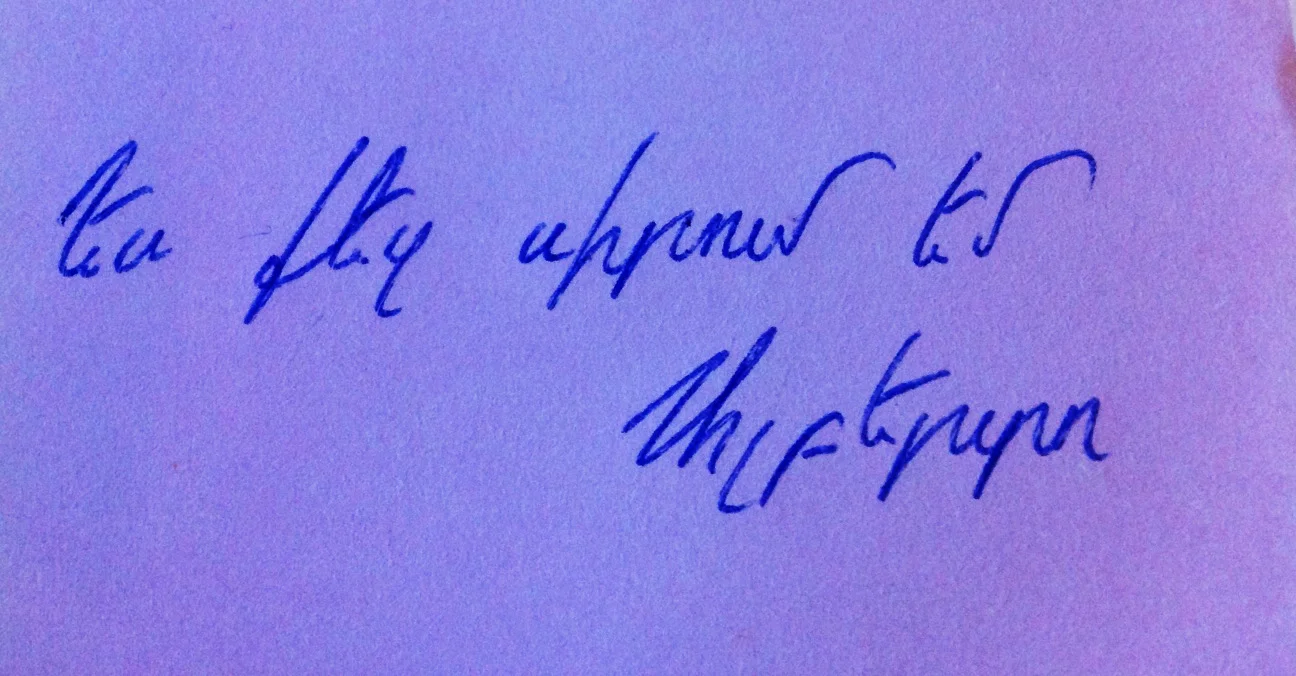 Ես քեզ սիրում եմ
Ալբերտո